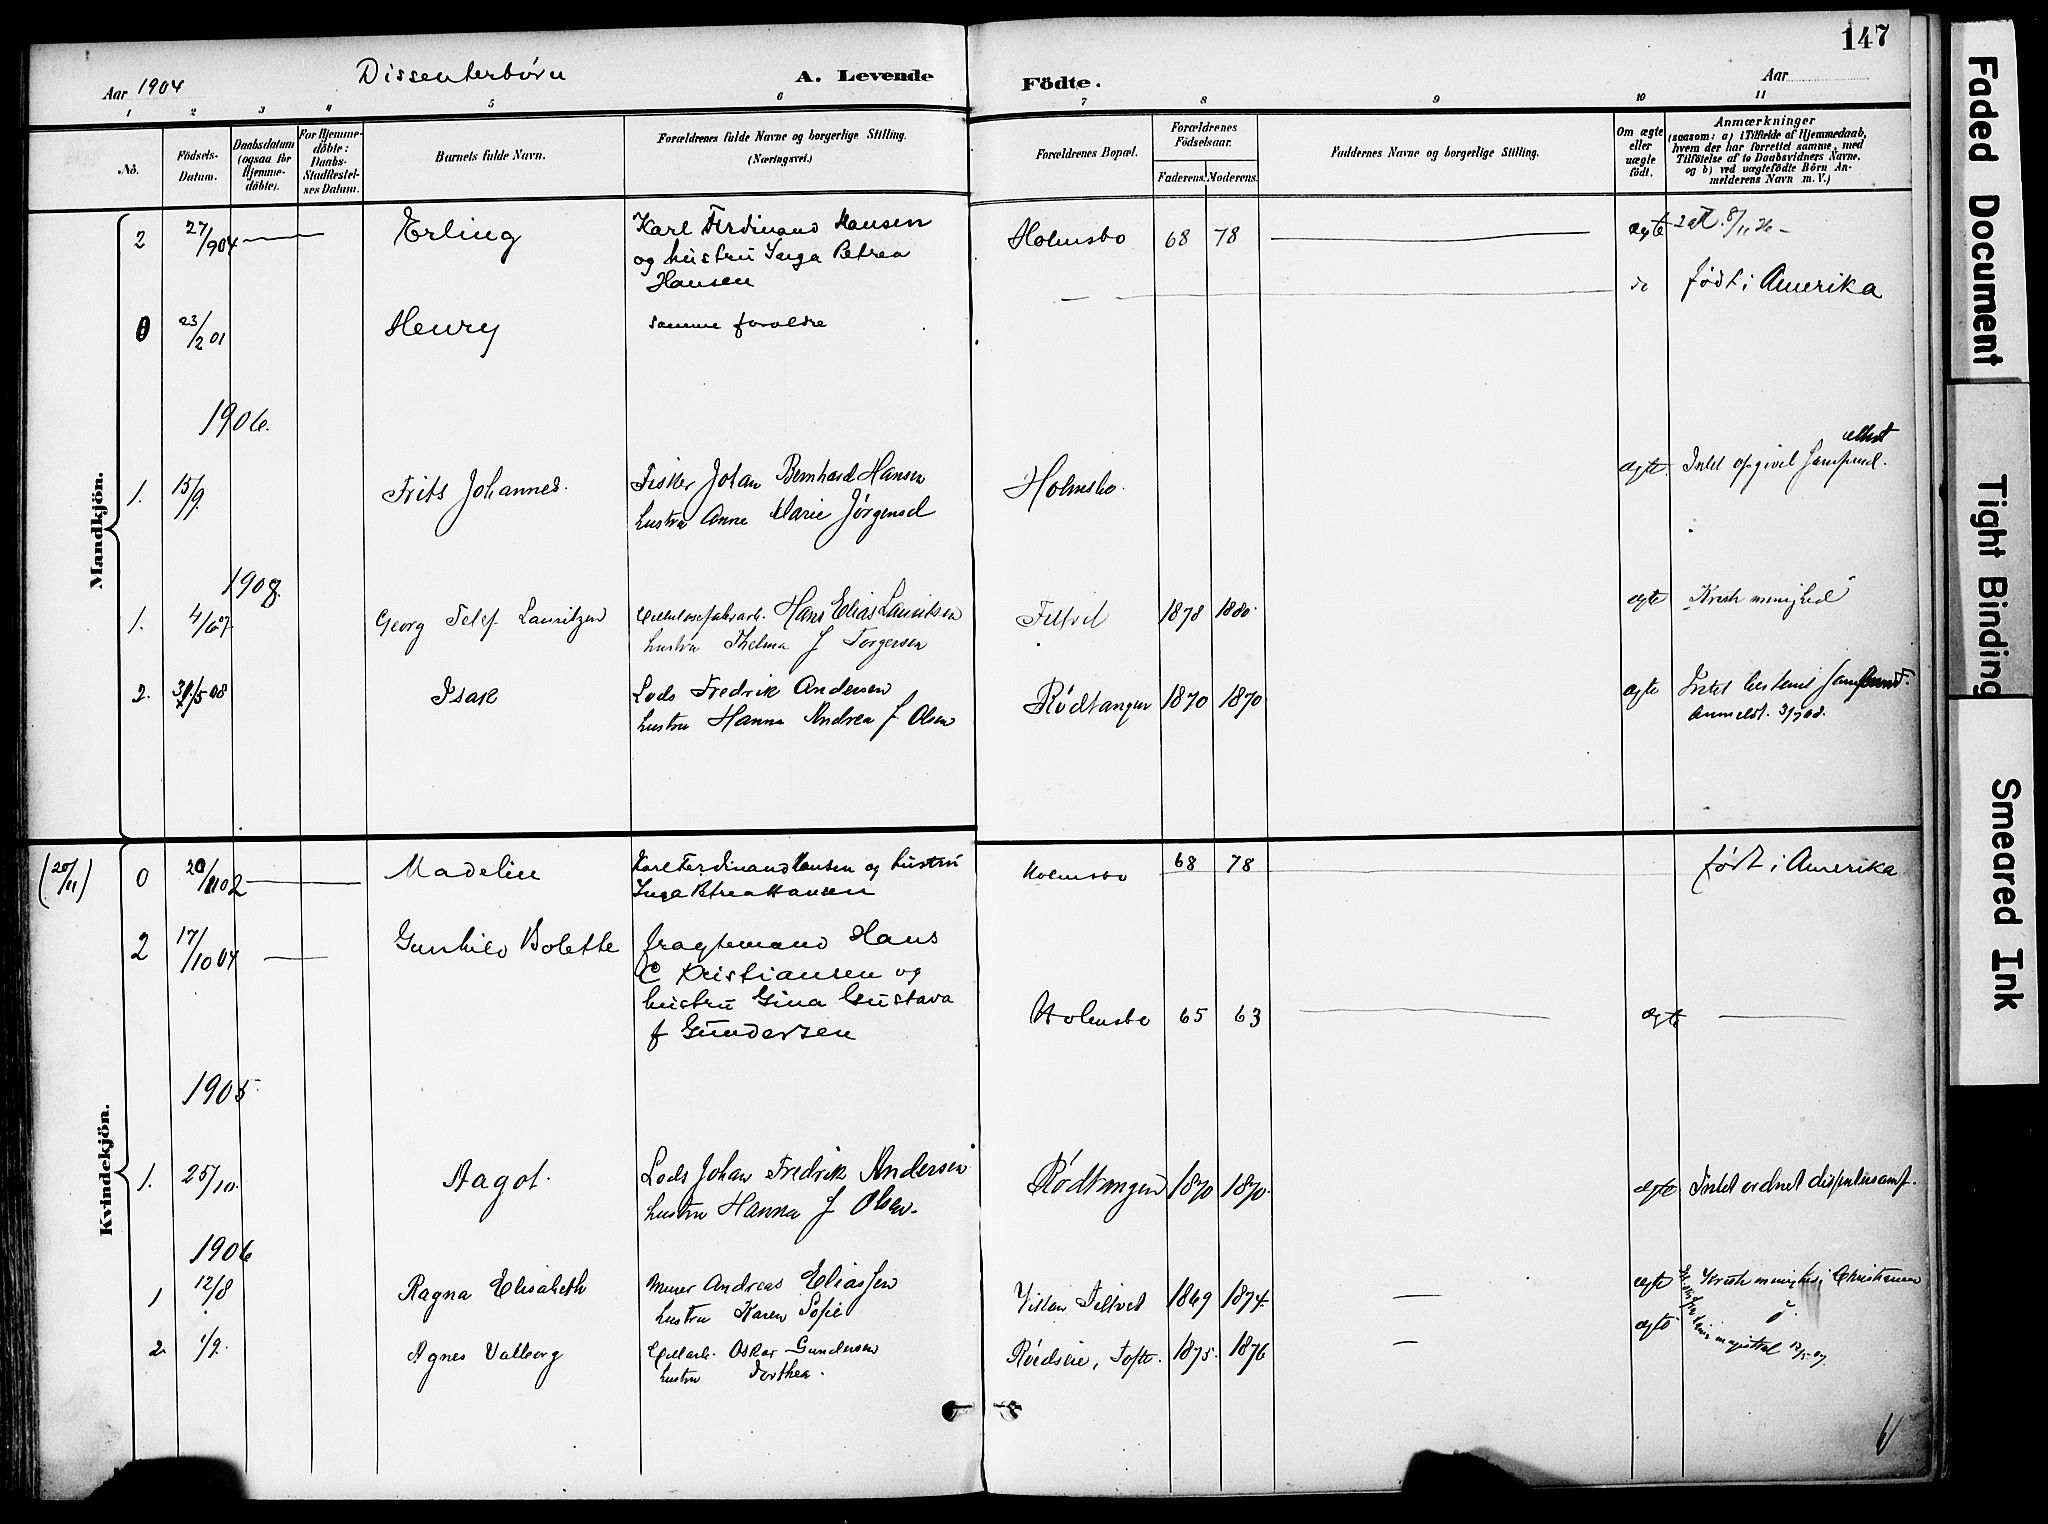 147
Aar 1904
Dissenterbørn
A. Levende
Födte.
Aar
1 2 3 4 5 6 7 8 9 10 11
No.
Födsels-
Datum.
Daabsdatum
(ogsaa for
Hjemme-
döbte).
For Hjemme-
döbte:
Daabs-
Stadfæstel-
ses Datum.
Barnets fulde Navn.
Forældrenes fulde Navne og borgerlige Stilling.
(Næringsvei.)
Forældrenes Bopæl.
Forældrenes
Födselsaar.
Faderens. Moderens.
Faddernes Navne og borgerlige Stilling.
Om ægte
eller
uægte
født.
Anmærkninger
(saasom: a) i Tilfælde af Hjemmedaab,
hvem der har forrettet samme, med
Tilføielse af to Daabsvidners Navne,
og b) ved uægtefødte Börn An-
melderens Navn m. V.)
Mandkjön.
2 27/9 04 Erling Karl Ferdinand Hansen Holmsbo 68 78 ægte
og hustru Inga Petrea
Hansen do født i Amerika
0 23/2 01 Henry samme foreldre
1906.
1. 15/9. Frits Johannes. Fisker Johan Bernhard Hansen Holmsbo. ægte. Intet opgivet Samfund.
hustru Anne Marie Jørgensd
1908.
1. 4/6 07 Georg Telef Lauritzen Hans Elias Lauritsen Filtvet 1878 1880. ægte
hustru Thelma f Torgersen
2. 31/5 08 Isak Lods Fredrik Andersen Rödtangen 1870 1870 ægte Intet bestemt Samfund.
hustru Hanna Andrea f Olsen Anmeldt. 3/7 08.
Kvindekjön.
(20/11) 0 20/11 02 Madelin Karl Ferdinand Hansen og hustru Holmsbo 68 78 født i Amerika
Inga Petrea Hansen
2 17/10 04 Gunhild Bolette fragtemand Hans
C Kristiansen og
hustru Gina Gustava Holmsbo 65 63 ægte
f Gundersen
1905.
1. 25/10. Aagot. Lods Johan Fredrik Andersen Rödtangen 1870 1870. ægte Intet ordnet dissentersamf.
hustru Hanna f Olsen.
1906
1 12/8 Ragna Elisabeth Murer Andreas Eliassen Filtvet 1869 1874. ægte
hustru Karen Sofie
2. 1/9. Agnes Valborg Oskar Gundersen Tofte. 1875. 1876 ægte
hustru Dorthea.
Faded Document
Tight Binding
Smeared Ink